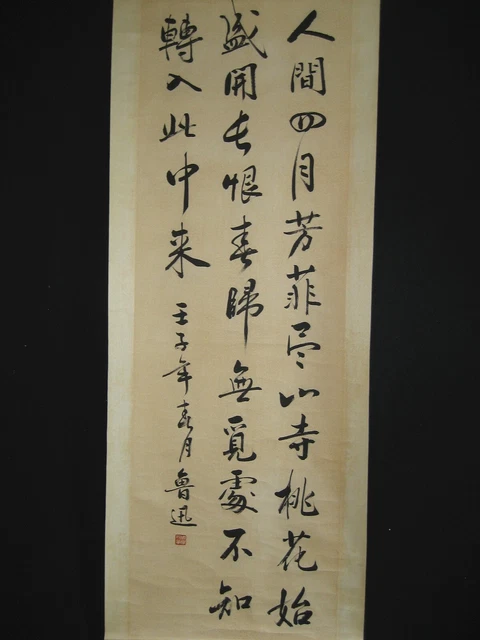 人間四月芳菲尽山寺桃花始
盛開长恨春歸無覓處不知
轉入此中来
壬子年春月魯迅